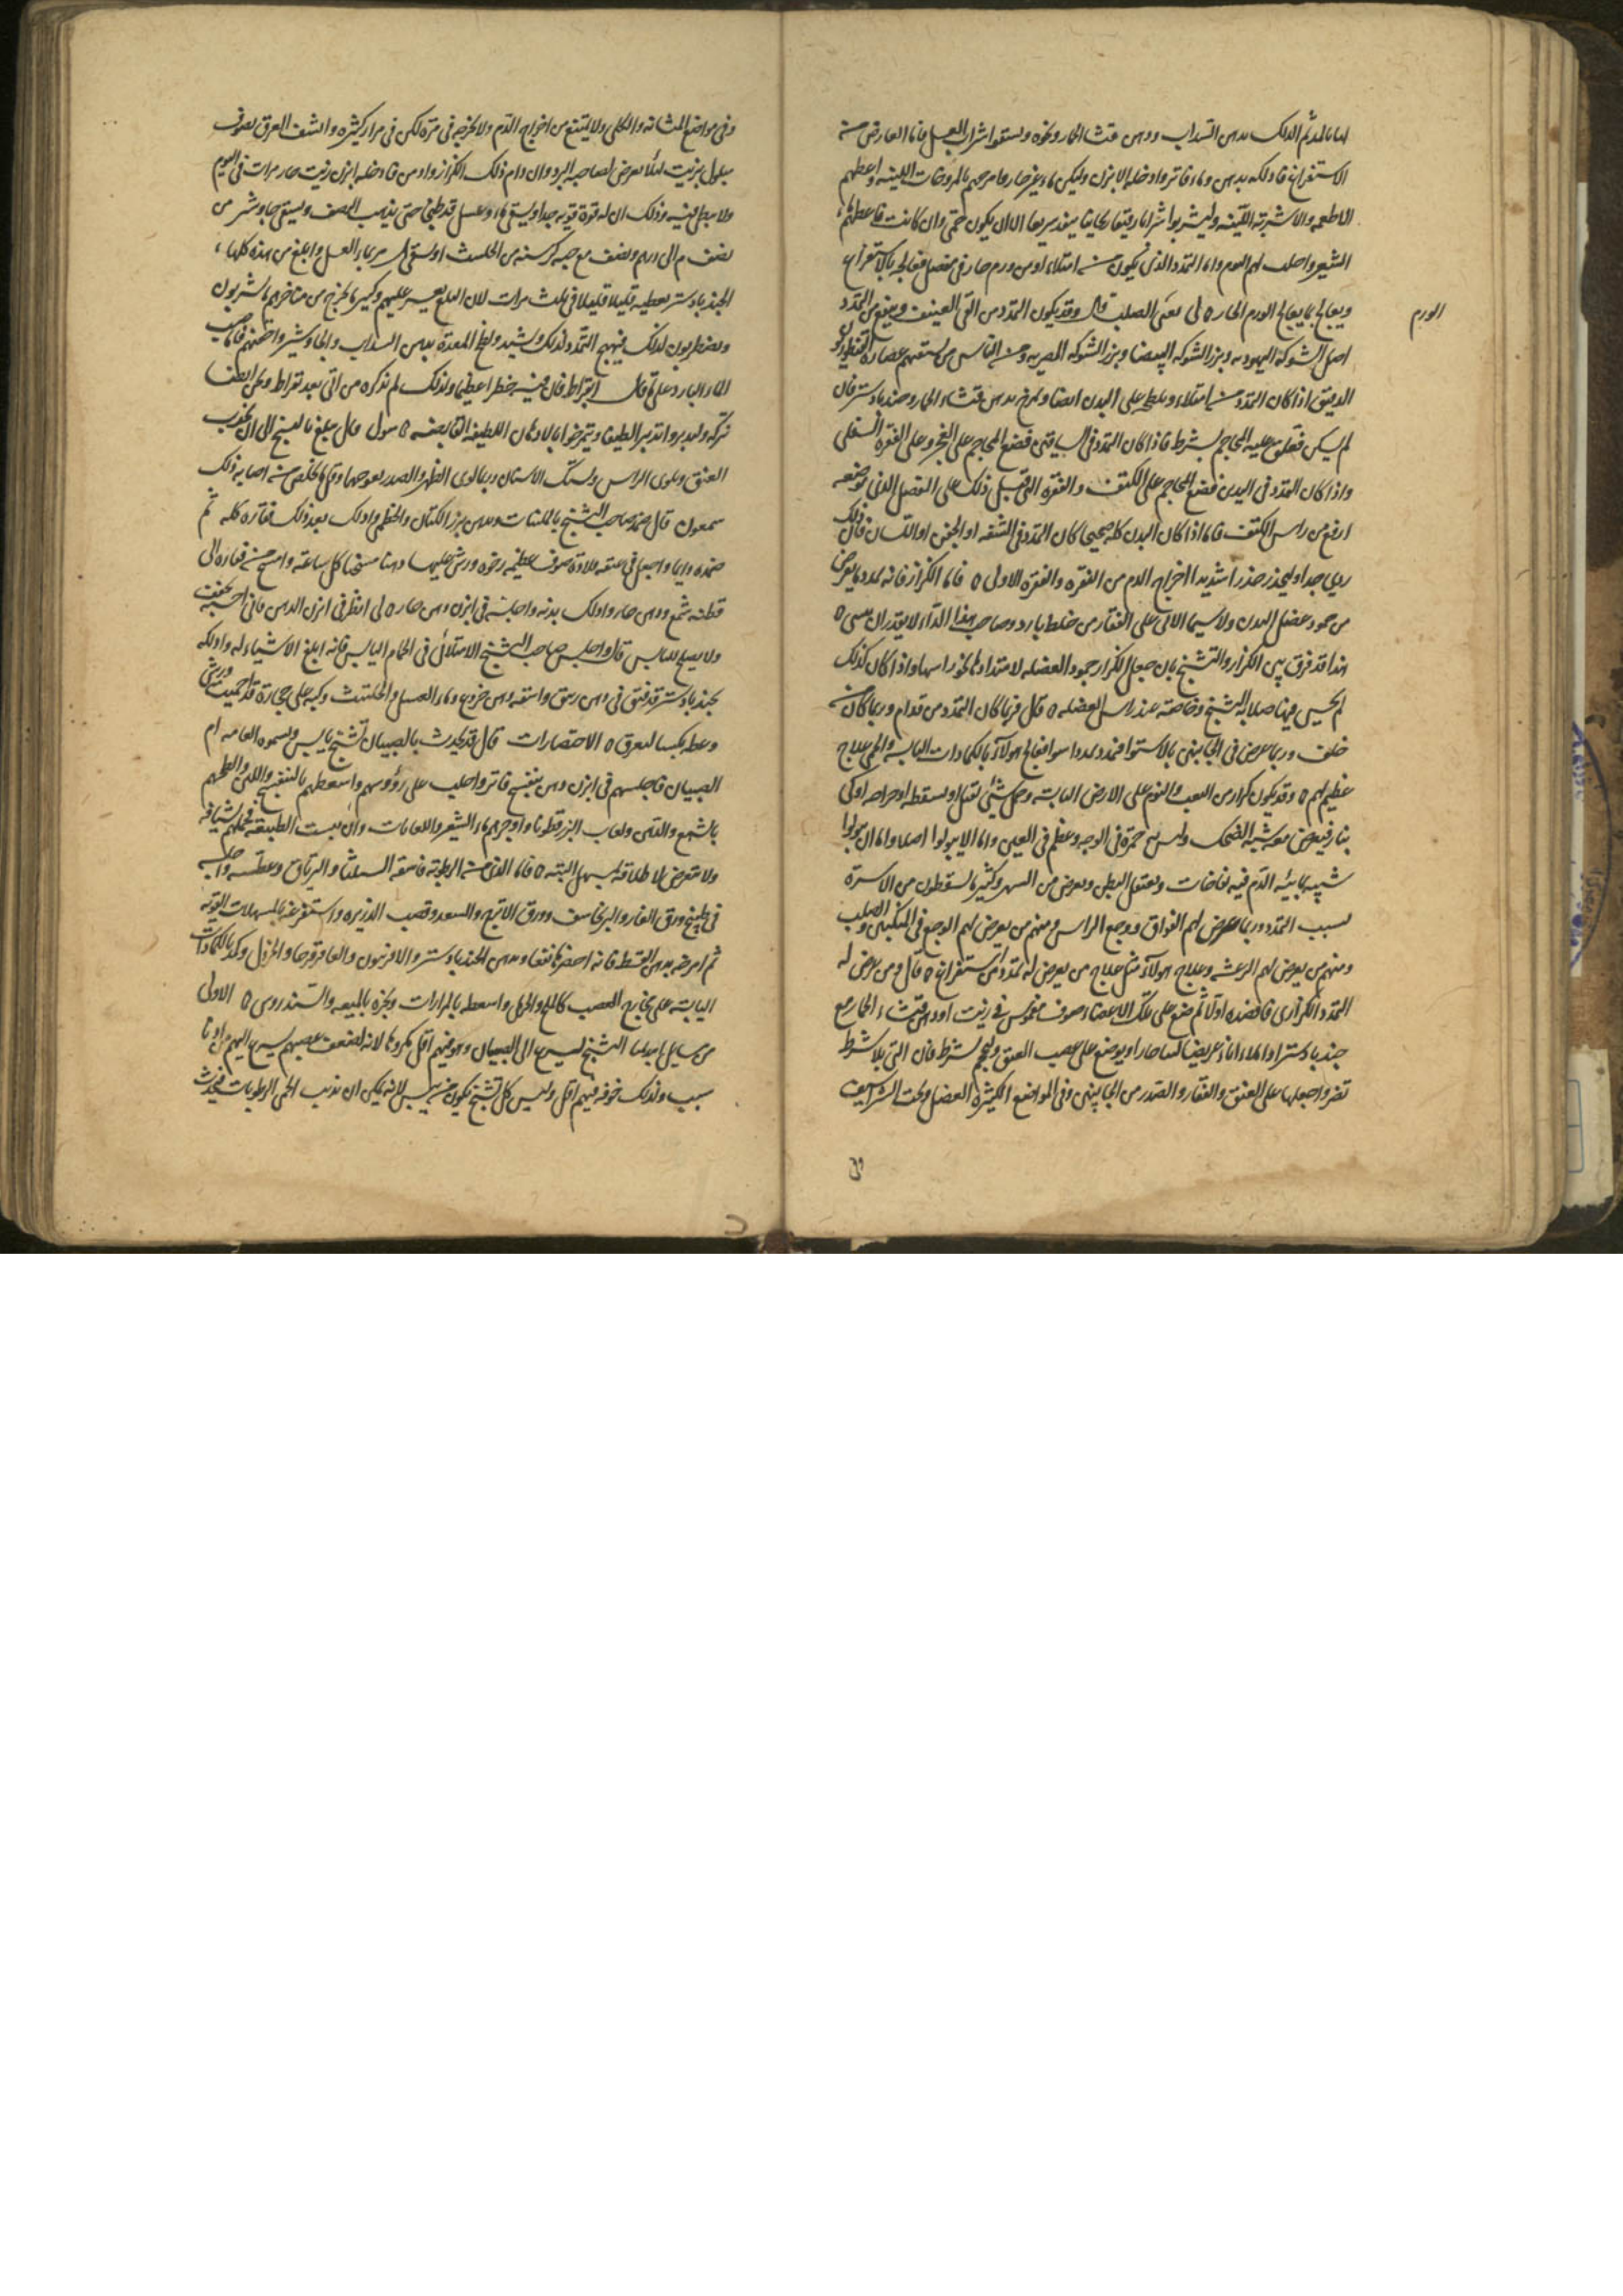 الاستفراغ فادلكه بدهن وماء فاتر وادخله الابزن وليكن ماء غير حار وامرخهم بالمروخات اللينه واعطهم
الاطعمه والاشربه اللينه وليشربوا شرابا رقيقا ريحانيا ينفذ سريعا الا ان يكون حمى وان كانت فاعطهم ماء
الشعير واحلب لهم اليوم واما التمدد الذي يكون من امتلاء او من ورم حار في مفصل فعالجه بالاستفراغ
ويعالج بما يعالج الورم الحار ه لي يعني الصلب قال وقد يكون التمدد من القي العنيف وينفع من التمدد
الورم
اصل الشوكه اليهوديه وبزر الشوكه البيضا وبزر الشوكه المصريه ومن الناس من يسقيهم عصارة القنطوريون
الدقيق اذا كان التمدد من امتلاء ويطلى على البدن ايضا ويمرخ بدهن قثاء الحمار وجندبادستر فان
لم يسكن فعلق عليه المحاجم بشرط فاذا كان التمدد في الساقين فضع المحاجم على العجز وعلى الفقره السفلى
واذا كان التمدد في اليدين فضع المحاجم على الكتف والفقره التي قبل ذلك على المفصل الذي موضعه
ارفع من راس الكتف فاما اذا كان البدن كله صحيحا كان التمدد في الشفه او الجفن او اللسان فان ذلك
ردي جدا وليحذر حذرا شديدا اخراج الدم من الفقره والفقره الاولى ه فاما الكزاز فانه تمدد ما يعرض
من جمود عضل البدن ولا سيما الاتي على الفقار من خلط بارد وصاحب هذا الداء لا يقدر ان ينثني ه
هذا قد فرق بين الكزاز والتشنج بان جعل الكزاز جمود العضله لامتدادها نحو راسها واذا كان كذلك
لم يحس فيها صلابه التشنج وخاصه عند راس العضله ه قال فربما كان التمدد من قدام وربما كان من
خلف وربما عرض في الجانبين بالاستوا فتمدد تمددا سوا فعالج هولاء بالكمادات اليابسه والحمى علاج
عظيم لهم ه وقد يكون كزاز من التعب والنوم على الارض اليابسه وحمل شيء ثقيل او لسقطه او جراحه او كي
بنار فيعرض معه شبيه الضحك وليس به حمرة في الوجه وعظم في العين واما الا يبولوا اصلا واما ان يبولوا
شبيه بمائيه الدم فيه نفاخات وتعتقل البطن ويعرض من السهر وكثيرا ما يسقطون من الاسره
بسبب التمدد وربما عرض لهم الفواق ووجع الراس ومنهم من يعرض لهم الوجع في المنكبين والصلب
ومنهم من يعرض لهم الرعشه وعلاج هولاء مثل علاج من يعرض له تمدد من استفراغ ه قال ومن عرض له
التمدد الكزازي فافصده اولا ثم ضع على تلك الاعضاء صوف مغموس في زيت او دهن قثاء الحمار مع
جندبادستر او املاء اناء عريضا لينا حارا ويوضع على عصب العنق وليحجم بشرط فان التي بلا شرط
تضر واجعلها على العنق والفقار والصدر من الجانبين وفي المواضع الكثيرة العضل وتحت الشراسيف
وفي مواضع المثانه والكلى ولا يمتنع من اخراج الدم ولا تخرجه في مرة لكن في مرار كثيره وانشف العرق بصوف
مبلول بزيت لئلا يعرض لصاحبه البرد وان دام ذلك الكزاز وادمن فادخله ابزن زيت حار مرات في اليوم
ولا يبطئ فيه وذلك ان له قوة قويه جدا ويسقى ماء وعسل قد طبخ حتى يذهب النصف ويسقى جاوشير من
نصف درهم الى درهم ونصف مع حبه كرسنه من الحلتيت او يسقى المر بماء العسل وابلغ من هذه كلها
الجندبادستر يعطيه قليلا قليلا في ثلث مرات لان البلع يعسر عليهم وكثير ما يخرج من مناخرهم ما يشربون
ويضطربون لذلك فيهيج التمدد لذلك ويشتد ولطخ المعدة بدهن السداب والجاوشير واحقنهم فاما صب
الماء البارد على ما قال ابقراط فان فيه خطرا عظيما ولذلك لم يذكره من اتى بعد بقراط
تركه وليدبروا تدبيرا لطيفا ويتمرخوا بالادهان اللطيفه القابضه ه
العنق ويلوى الراس ويشبك الاسنان وربما لوى الظهر والصدر يعوجها وقل ما يخلص من اصابه ذلك
شمعون قال ضمد صاحب التشنج بالملينات ودهن بزر الكتان والخطمى وادلك بعد ذلك فقاره كله ثم
ضمده دايما واجعل في عنقه قلادة صوف عظيمه رخوه ورش عليها دهنا مسخنا كل ساعة وامسح من فقاره الى
قطنه بشمع ودهن حار وادلك بدنه واجلسه في ابزن دهن حار ه لي انظر في ابزن الدهن فاني احسبه يجفف
ولا يصلح لليابس قال واجلس صاحب التشنج الامتلائي في الحمام اليابس فانه ابلغ الاشياء له وادلكه
بجندبادستر قد فتق في دهن زنبق واسقه دهن خروع وماء العسل والحلتيت وكبه على حجارة قد احميت ورش
وغطه بكسا ليعرق ه الاختصارات قال قد يحدث بالصبيان تشنج يابس ويسموه العامه ام
الصبيان فاجلسهم في ابزن دهن بنفسج فاتر واحلب على رؤوسهم واسعطهم بالبنفسج واللبن واطلهم
بالشمع والدهن ولعاب البزرقطونا واوجرهم ماء الشعير واللعابات وان يبست الطبيعه فحملهم شيافه
ولا تتعرض لاطلاقه بمسهل البته ه فاما الذي من الرطوبه فاسقه السليثا والترياق وعطسه واجلسه
في طبيخ ورق الغار والبرنجاسف وورق الاترج والسعد وقصب الذريره واستفرغه بالمسهلات القويه
ثم امرخه بدهن القسط فانه احضرها نفعا ودهن الجندبادستر والافربيون والعاقرقرحا والخردل وكمد بالكمادات
اليابسه على مخارج العصب كالملح والرمل واسعطه بالمرارات وبخره بالميعه والسندروس ه الاولى
من مسايل ابيذيميا التشنج يسرع الى الصبيان وهو فيهم اقل مكروها لانه لضعف عصبهم يسرع اليهم من ادنا
سبب ولذلك خوفه فيهم اقل وليس كل تشنج يكون من يبس لانه يمكن ان تذيب الحمى الرطوبات فيحدث